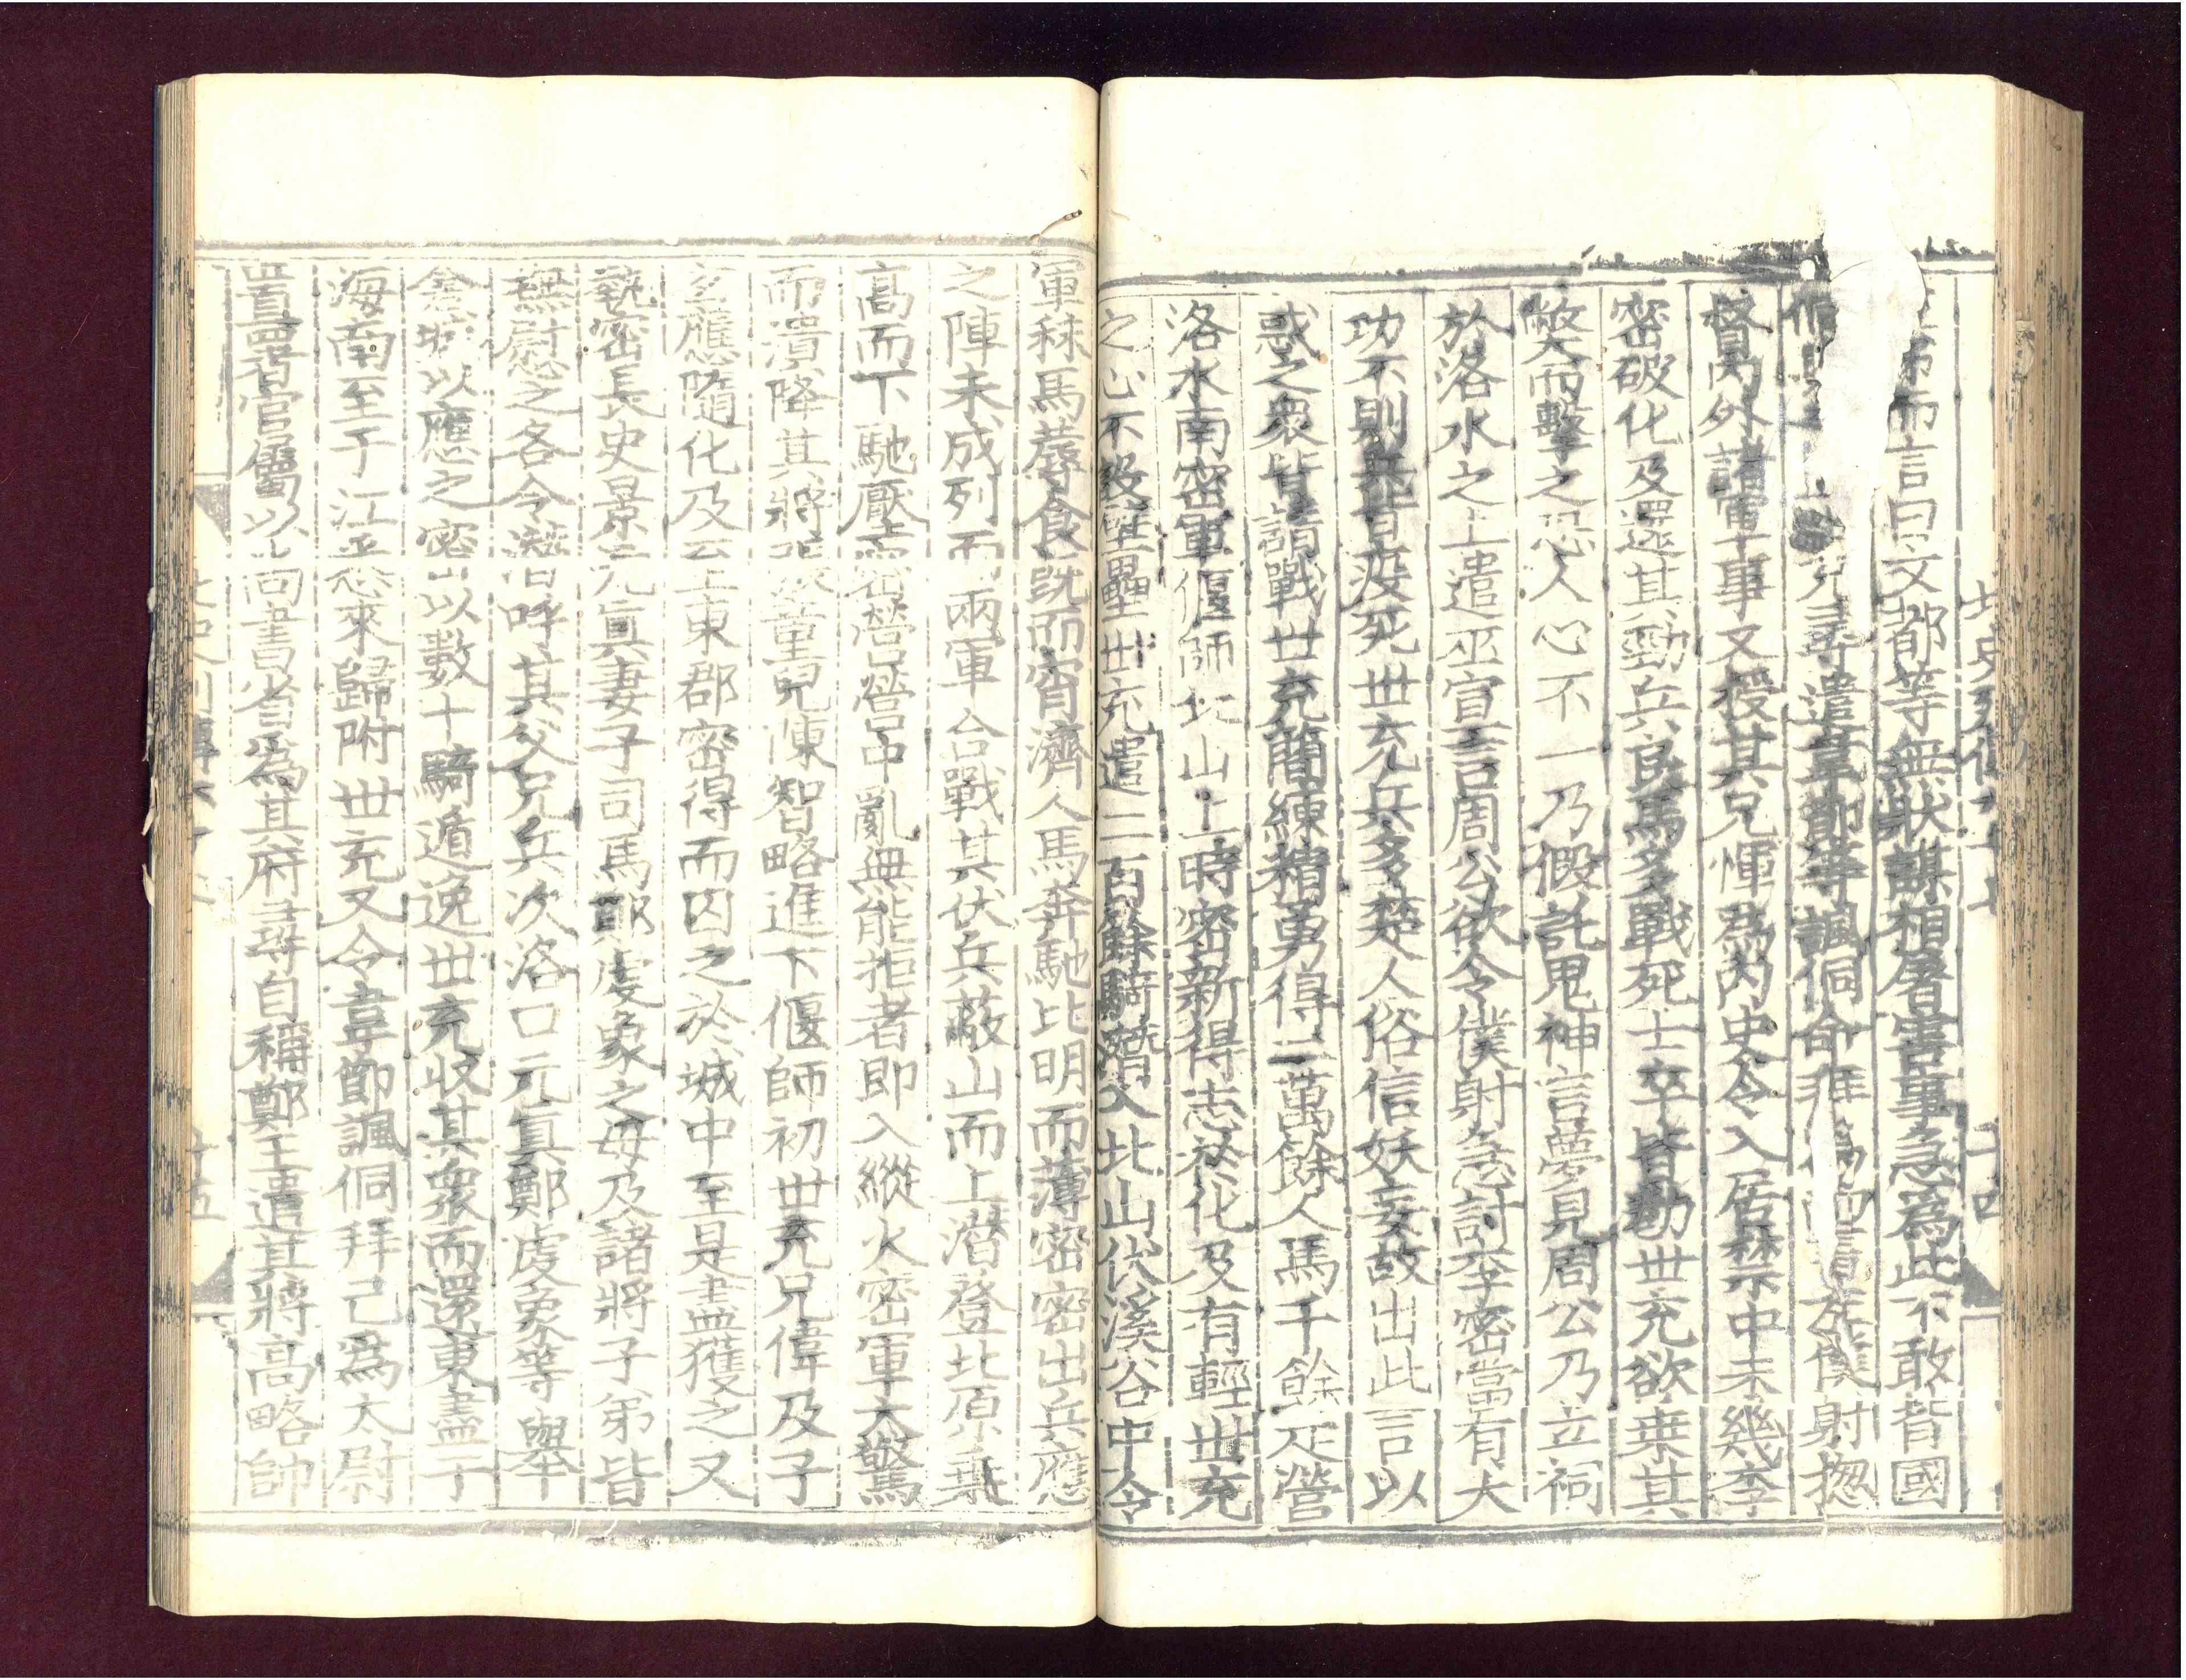 北史列傳六十七 十四
涕而言曰文都等無狀謀相屠害事急爲此不敢背國
侗與之 充尋遣韋節等諷侗命拜爲尚書左僕射揔
督內外諸軍事又授其兄惲爲內史令入居禁中未幾李
密破化及還其勁兵良馬多戰死士卒皆勌世充欲乗其
弊而擊之恐人心不一乃假託鬼神言夢見周公乃立祠
於洛水之上遣巫宣言周公欲令僕射急討李密當有大
功不則兵皆疫死世充兵多楚人俗信妖妄故出此言以
惑之衆皆請戰世充簡練精勇得二萬餘人馬千餘疋營
洛水南密軍偃師北山上時密新得志於化及有輕世充
之心不設壁壘世充遣二百餘騎潛入北山伏溪谷中令
軍秣馬蓐食既而宵濟人馬奔馳比明而薄密密出兵應
之陣未成列而兩軍合戰其伏兵蔽山而上潛登北原乗
高而下馳壓密營營中亂無能拒者即入縱火密軍大驚
而潰降其將張童兒陳智略進下偃師初世充兄偉及子
玄應隨化及至東郡密得而囚之於城中至是盡獲之又
執密長史邴元眞妻子司馬鄭虔象之母及諸將子弟皆
撫慰之各令潛呼其父兄兵次洛口元眞鄭虔象等舉
倉城以應之密以數十騎遁逸世充收其衆而還東盡于
海南至于江悉來歸附世充又令韋節諷侗拜己爲太尉
置署官屬以尚書省爲其府尋自稱鄭王遣其將高略帥
北史列傳六十七 十五